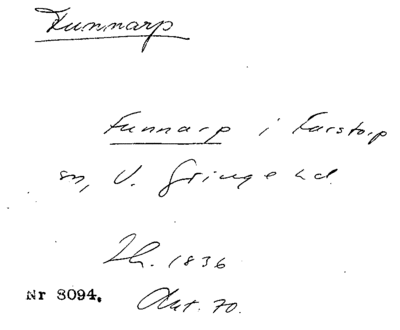 Funnarp
Funnarp i Farstorp
sn, V. Göinge hd.
1836
Nr 8094. Akt. 70.